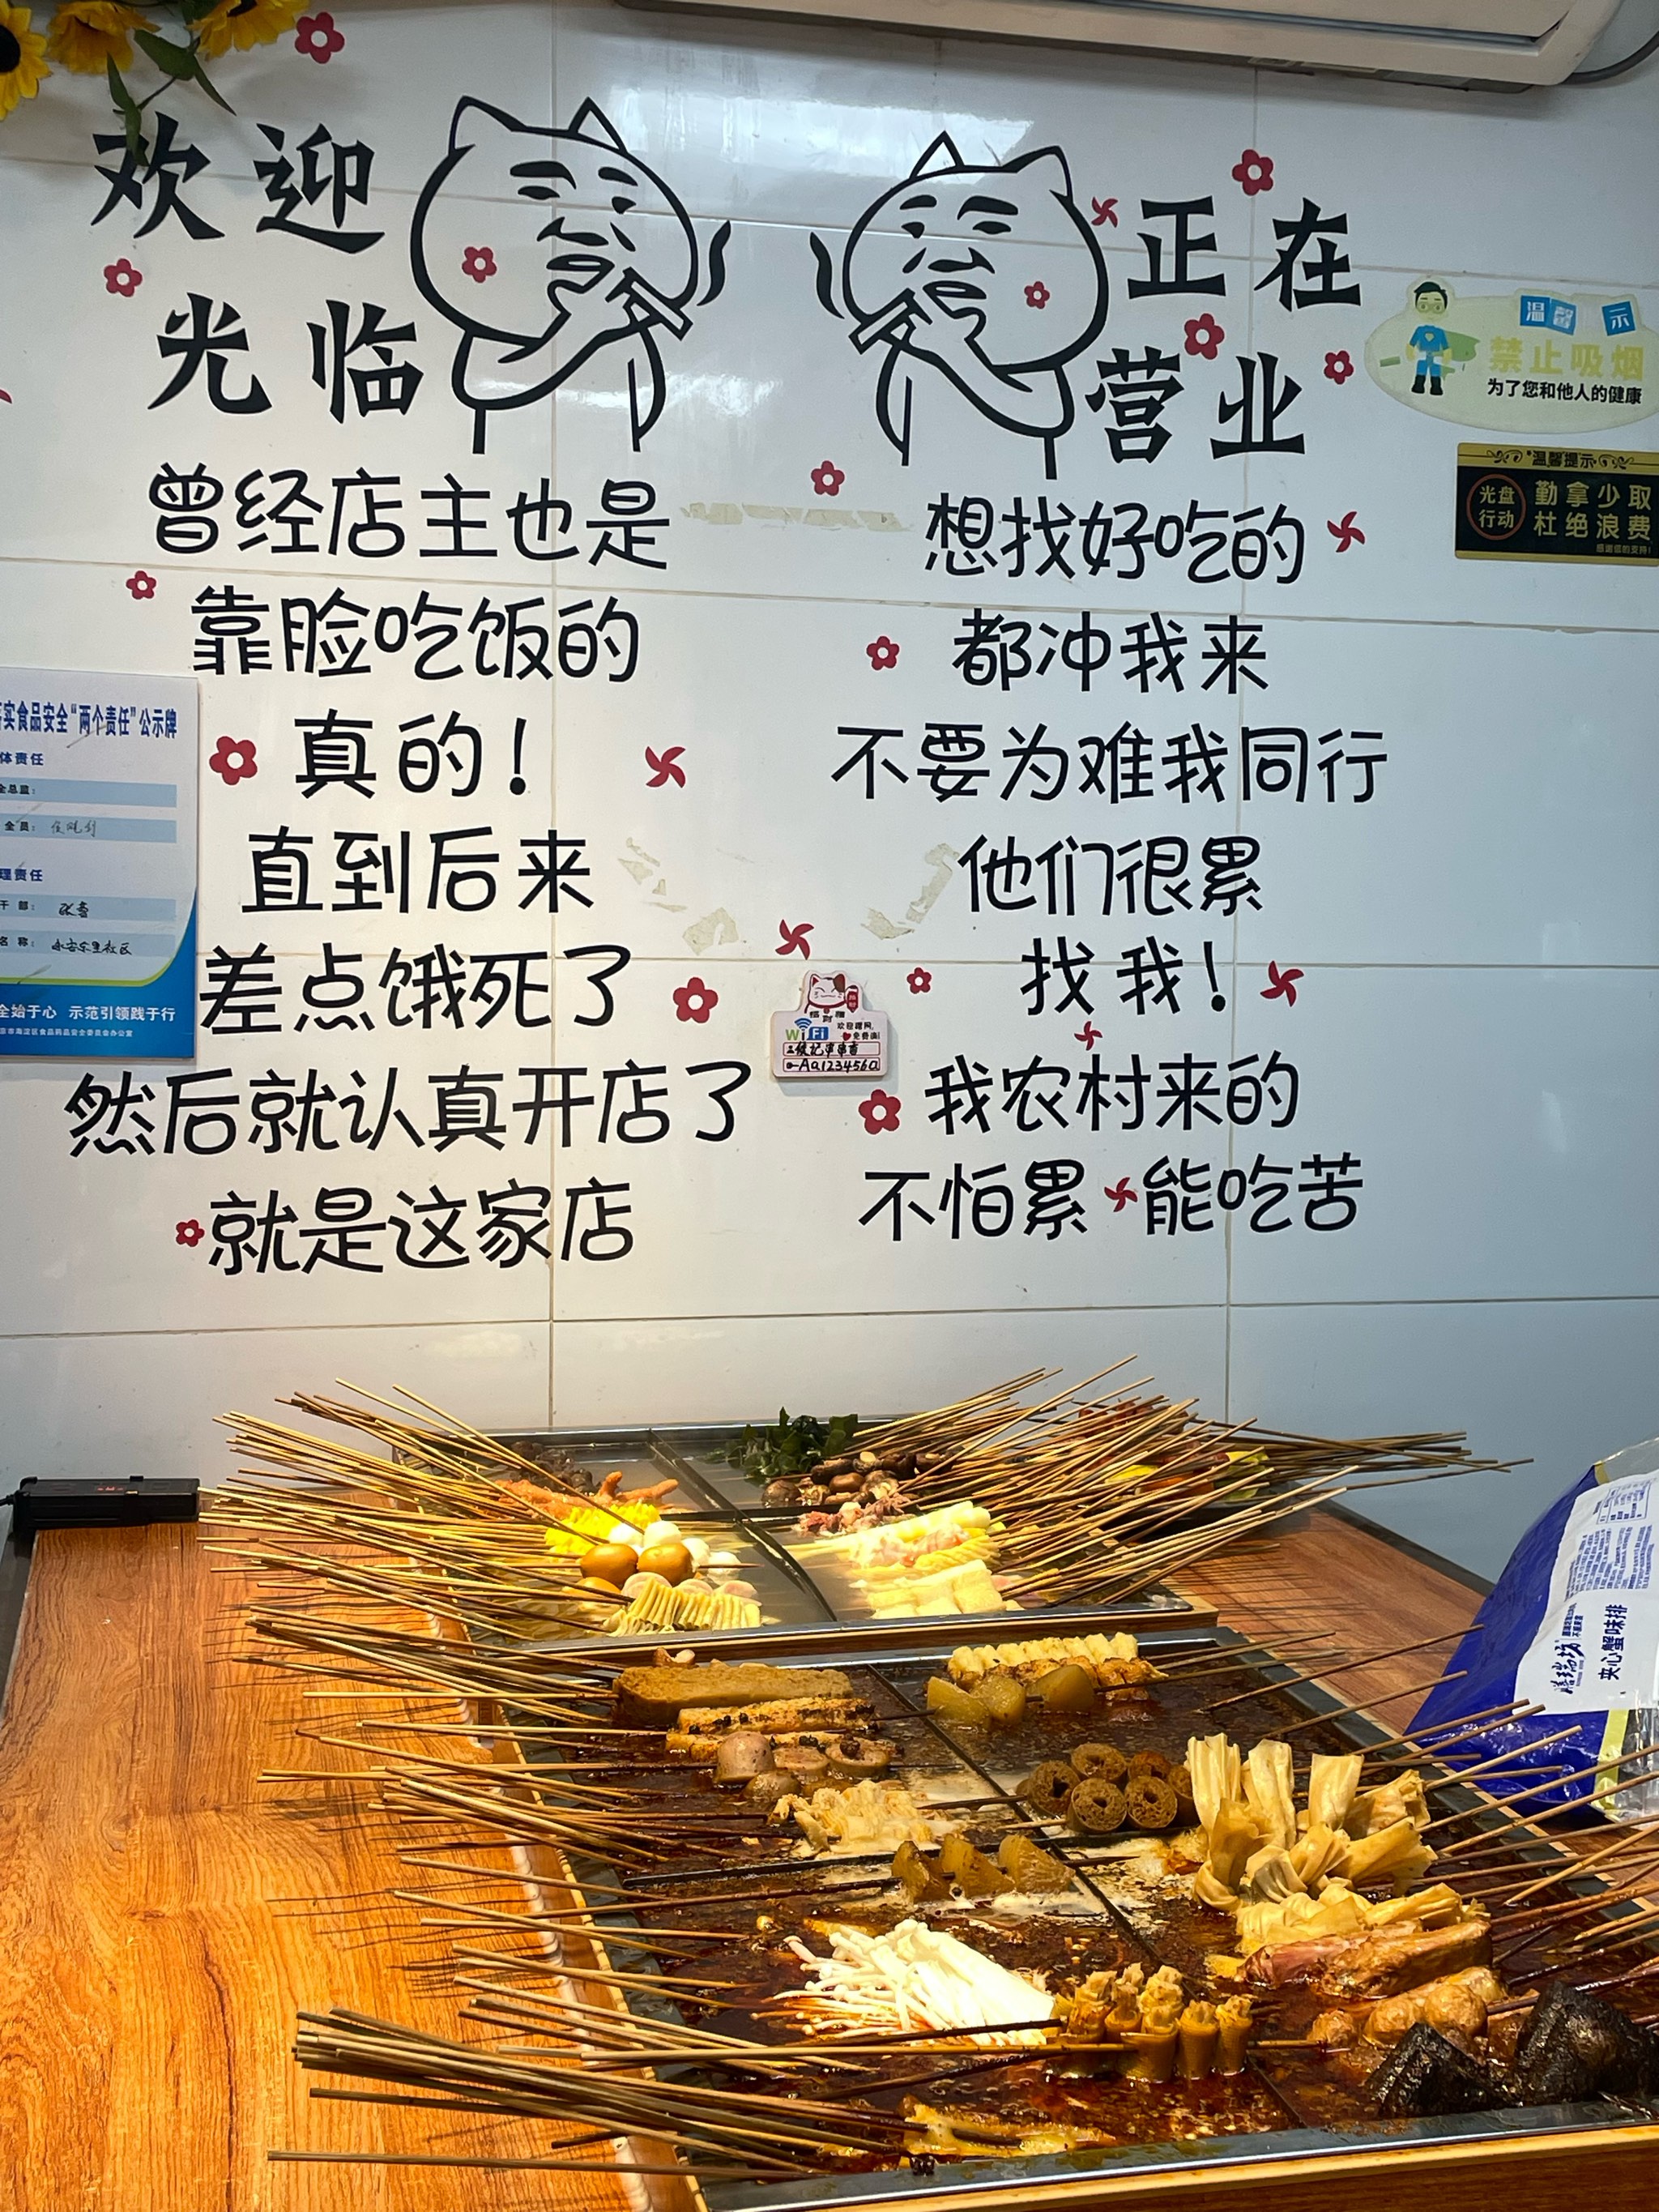 欢迎
光临
正在
营业
曾经店主也是
靠脸吃饭的
真的!
直到后来
差点饿死了
然后就认真开店了
就是这家店
想找好吃的
都冲我来
不要为难我同行
他们很累
找我!
我农村来的
不怕累 能吃苦
温馨 示
禁止吸烟
为了您和他人的健康
温馨提示
光盘
行动
勤拿少取
杜绝浪费
感谢您的支持!
实食品安全“两个责任”公示牌
体责任
全总监:
全员:
理责任
干部:
名称:
全始于心 示范引领践于行
WiFi
Aa123456@
夹心蟹味排